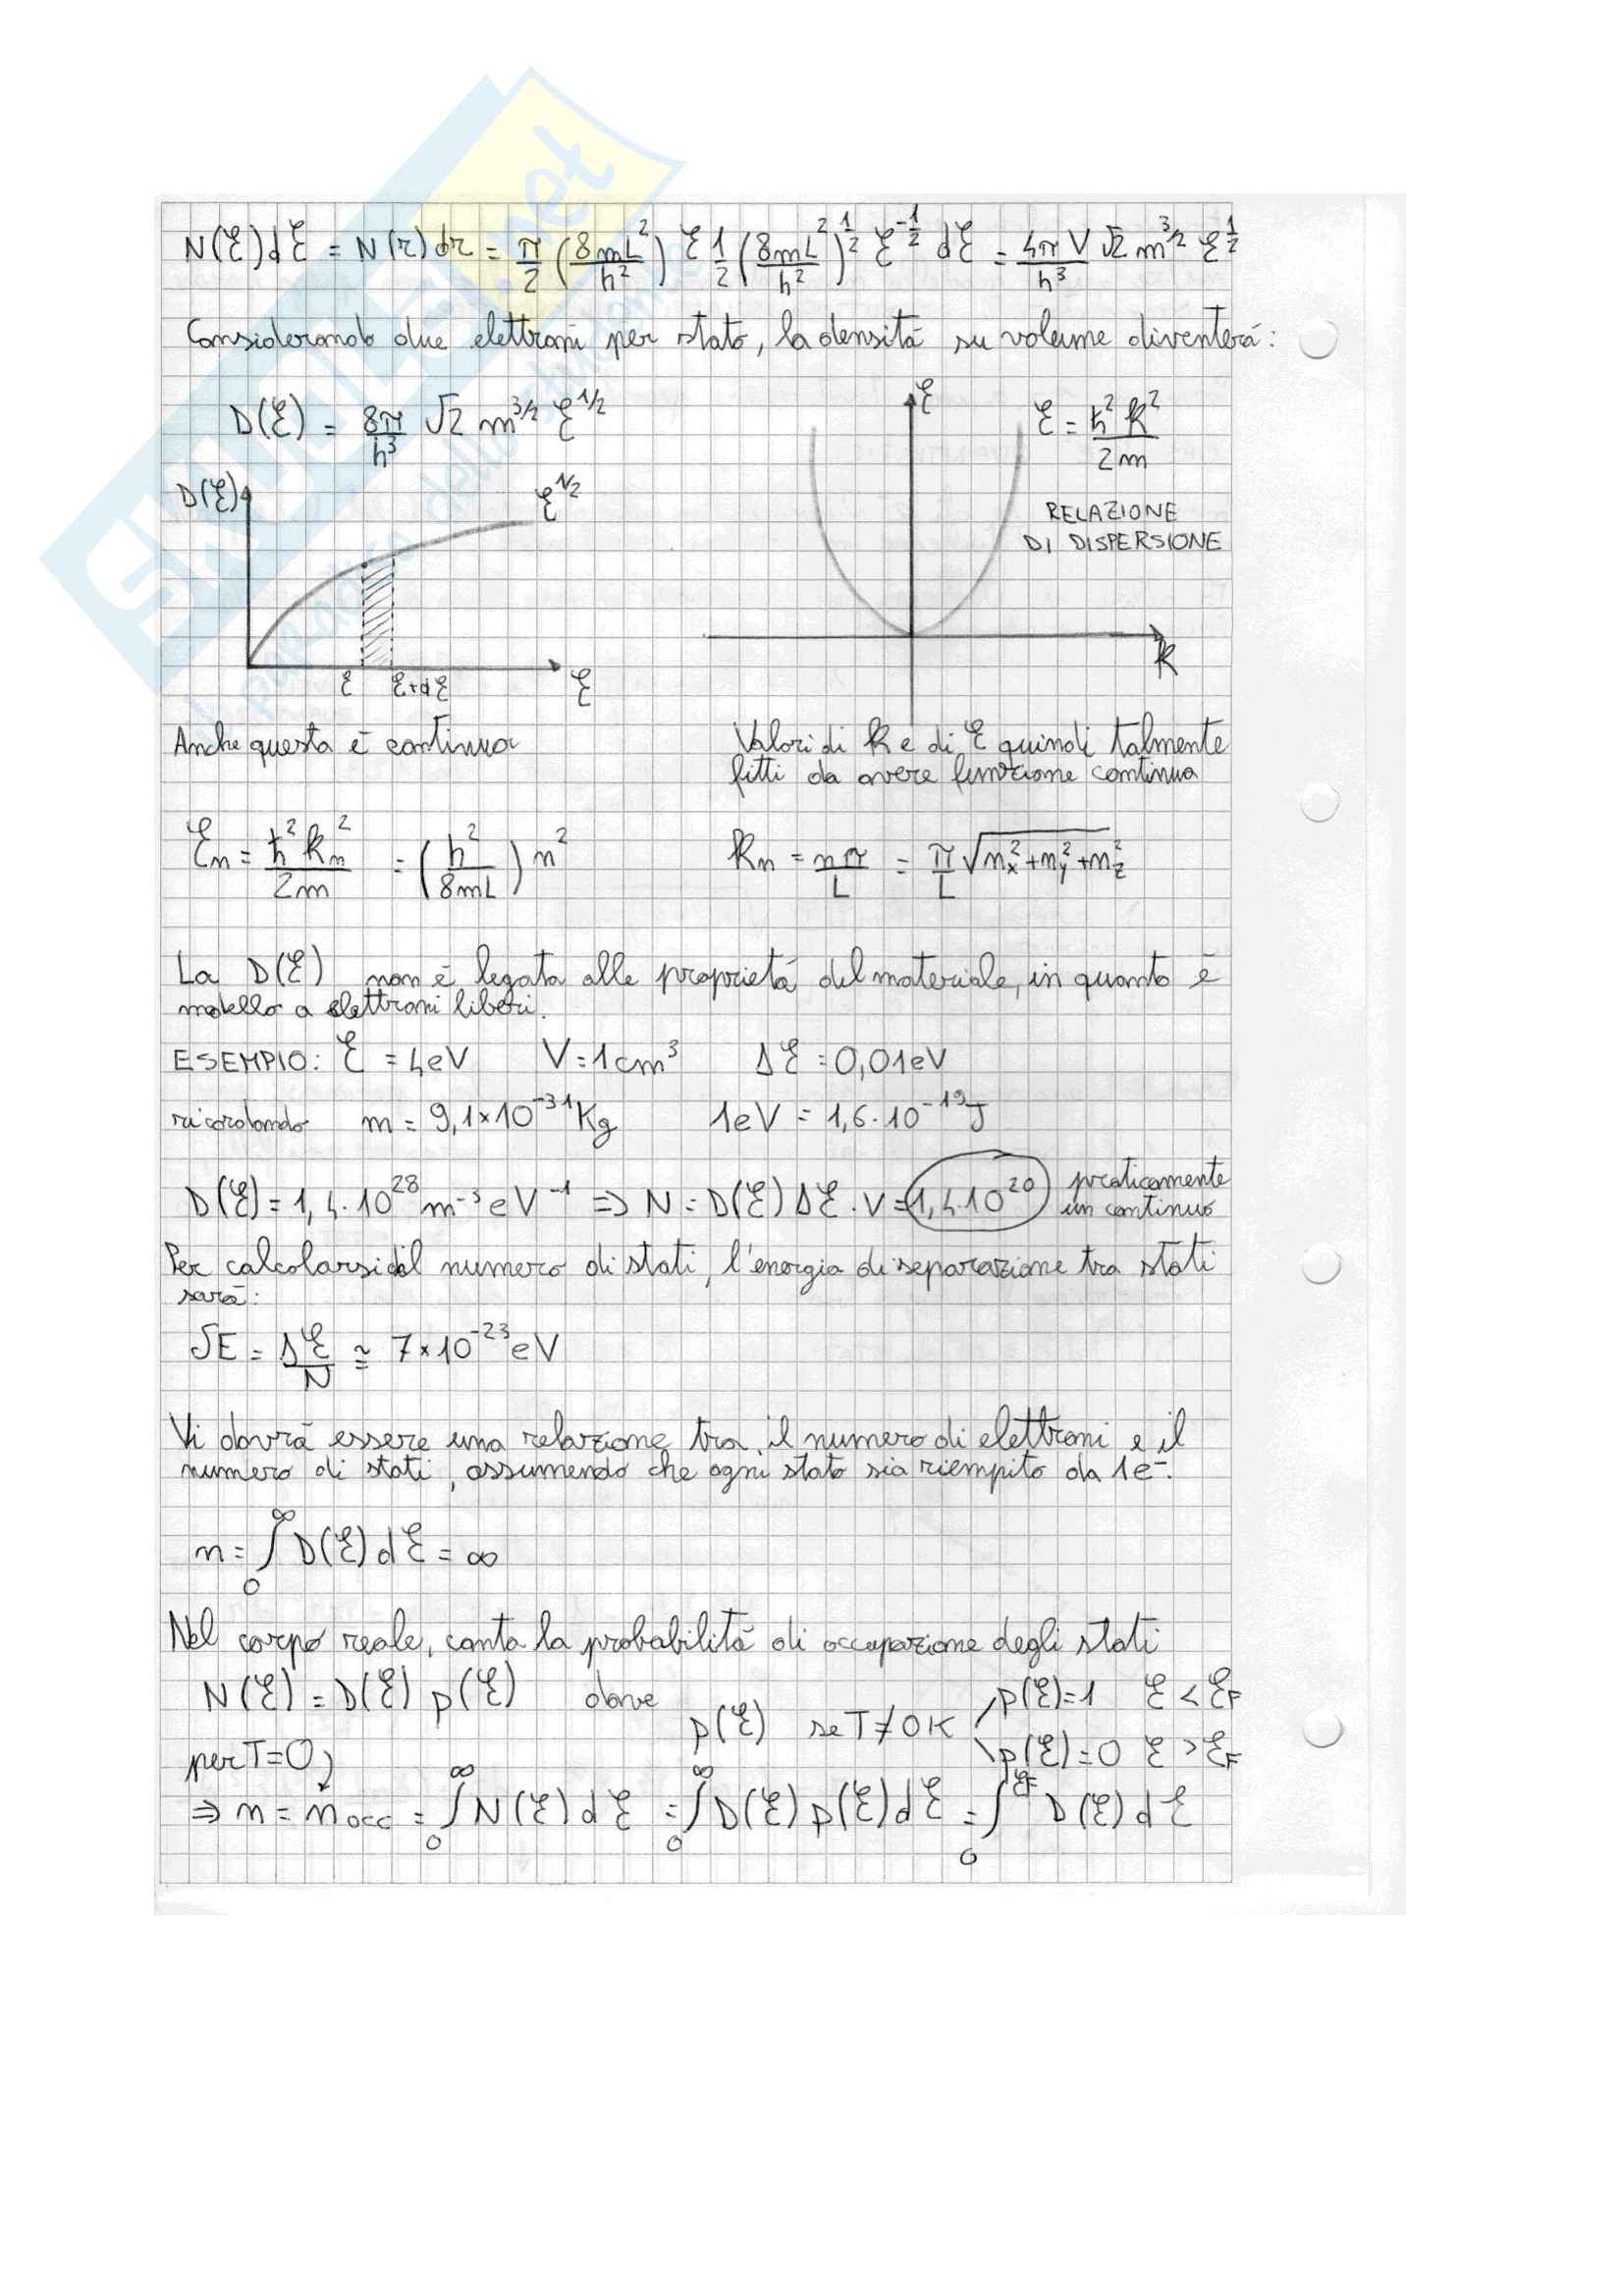 N(ℰ)dℰ = N(r)dr = π/2 (8mL²/h²) ℰ 1/2 (8mL²/h²)^1/2 ℰ^-1/2 dℰ = 4πV/h³ √2 m^3/2 ℰ^1/2
Considerando due elettroni per stato, la densitá su volume diventerá:
D(ℰ) = 8π/h³ √2 m^3/2 ℰ^1/2
ℰ
ℰ = ħ²k²/2m
D(ℰ)
ℰ^1/2
RELAZIONE
DI DISPERSIONE
ℰ ℰ+dℰ ℰ
k
Anche questa è continua
Valori di k e di ℰ quindi talmente
fitti da avere funzione continua
ℰn = ħ²kn²/2m = (h²/8mL) n²
kn = nπ/L = π/L √nx²+ny²+nz²
La D(ℰ) non è legata alle proprietá del materiale, in quanto è
modello a elettroni liberi.
ESEMPIO: ℰ = 4eV V=1cm³ Δℰ = 0,01eV
ricordando m = 9,1×10^-31 Kg 1eV = 1,6·10^-19 J
D(ℰ) = 1,4·10^28 m^-3 eV^-1 => N = D(ℰ) Δℰ·V = 1,4·10^20 praticamente
un continuo
Per calcolarsi il numero di stati, l'energia di separazione tra stati
sarà:
δE = Δℰ/N ≅ 7×10^-23 eV
Vi dovrà essere una relazione tra il numero di elettroni e il
numero di stati, assumendo che ogni stato sia riempito da 1e⁻.
n = ∫₀^∞ D(ℰ)dℰ = ∞
Nel corpo reale, conta la probabilitá di occupazione degli stati
N(ℰ) = D(ℰ) p(ℰ) dove p(ℰ) se T≠0K p(ℰ)=1 ℰ < ℰF
p(ℰ)=0 ℰ > ℰF
per T=0
⇒ n = nocc = ∫₀^∞ N(ℰ)dℰ = ∫₀^∞ D(ℰ)p(ℰ)dℰ = ∫₀^ℰF D(ℰ)dℰ